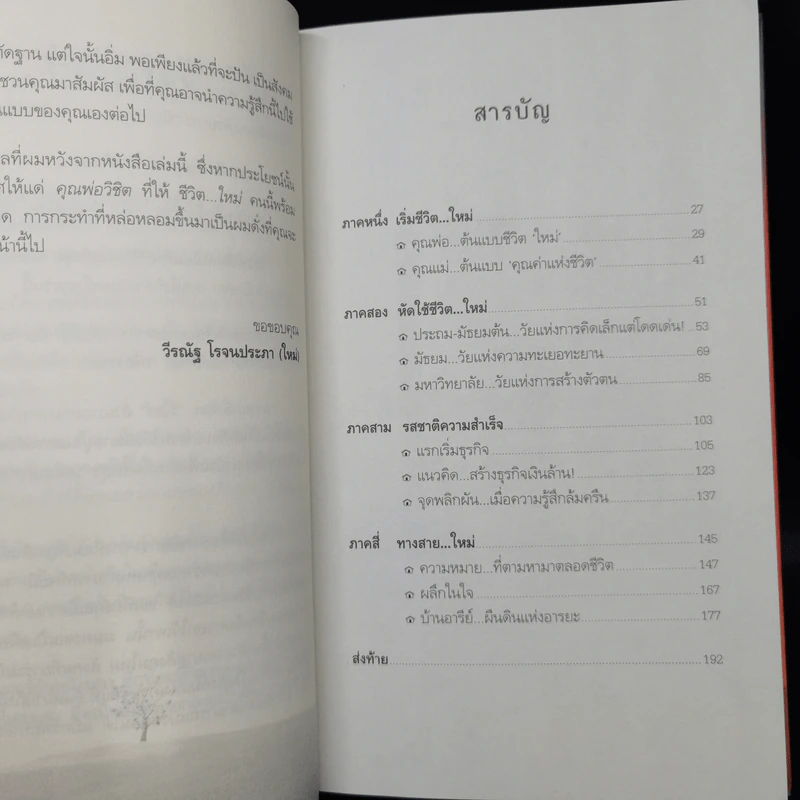 ัตฐาน แต่ใจนั้นอิ่ม พอเพียงแล้วที่จะปัน เป็นสังคม
ชวนคุณมาสัมผัส เพื่อที่คุณอาจนำความรู้สึกนี้ไปใช้
นแบบของคุณเองต่อไป
ลที่ผมหวังจากหนังสือเล่มนี้ ซึ่งหากประโยชน์นั้น
ศให้แด่ คุณพ่อวิชิต ที่ให้ ชีวิต...ใหม่ คนนี้พร้อม
ด การกระทำที่หล่อหลอมขึ้นมาเป็นผมดั่งที่คุณจะ
น้านี้ไป
ขอขอบคุณ
วีรณัฐ โรจนประภา (ใหม่)
สารบัญ
ภาคหนึ่ง เริ่มชีวิต...ใหม่ 27
๑ คุณพ่อ...ต้นแบบชีวิต 'ใหม่' 29
๑ คุณแม่...ต้นแบบ 'คุณค่าแห่งชีวิต' 41
ภาคสอง หัดใช้ชีวิต...ใหม่ 51
๑ ประถม-มัธยมต้น...วัยแห่งการคิดเล็กแต่โดดเด่น! 53
๑ มัธยม...วัยแห่งความทะเยอทะยาน 69
๑ มหาวิทยาลัย...วัยแห่งการสร้างตัวตน 85
ภาคสาม รสชาติความสำเร็จ 103
๑ แรกเริ่มธุรกิจ 105
๑ แนวคิด...สร้างธุรกิจเงินล้าน! 123
๑ จุดพลิกผัน...เมื่อความรู้สึกล้มครืน 137
ภาคสี่ ทางสาย...ใหม่ 145
๑ ความหมาย...ที่ตามหามาตลอดชีวิต 147
๑ ผลึกในใจ 167
๑ บ้านอารีย์...ผืนดินแห่งอารยะ 177
ส่งท้าย 192